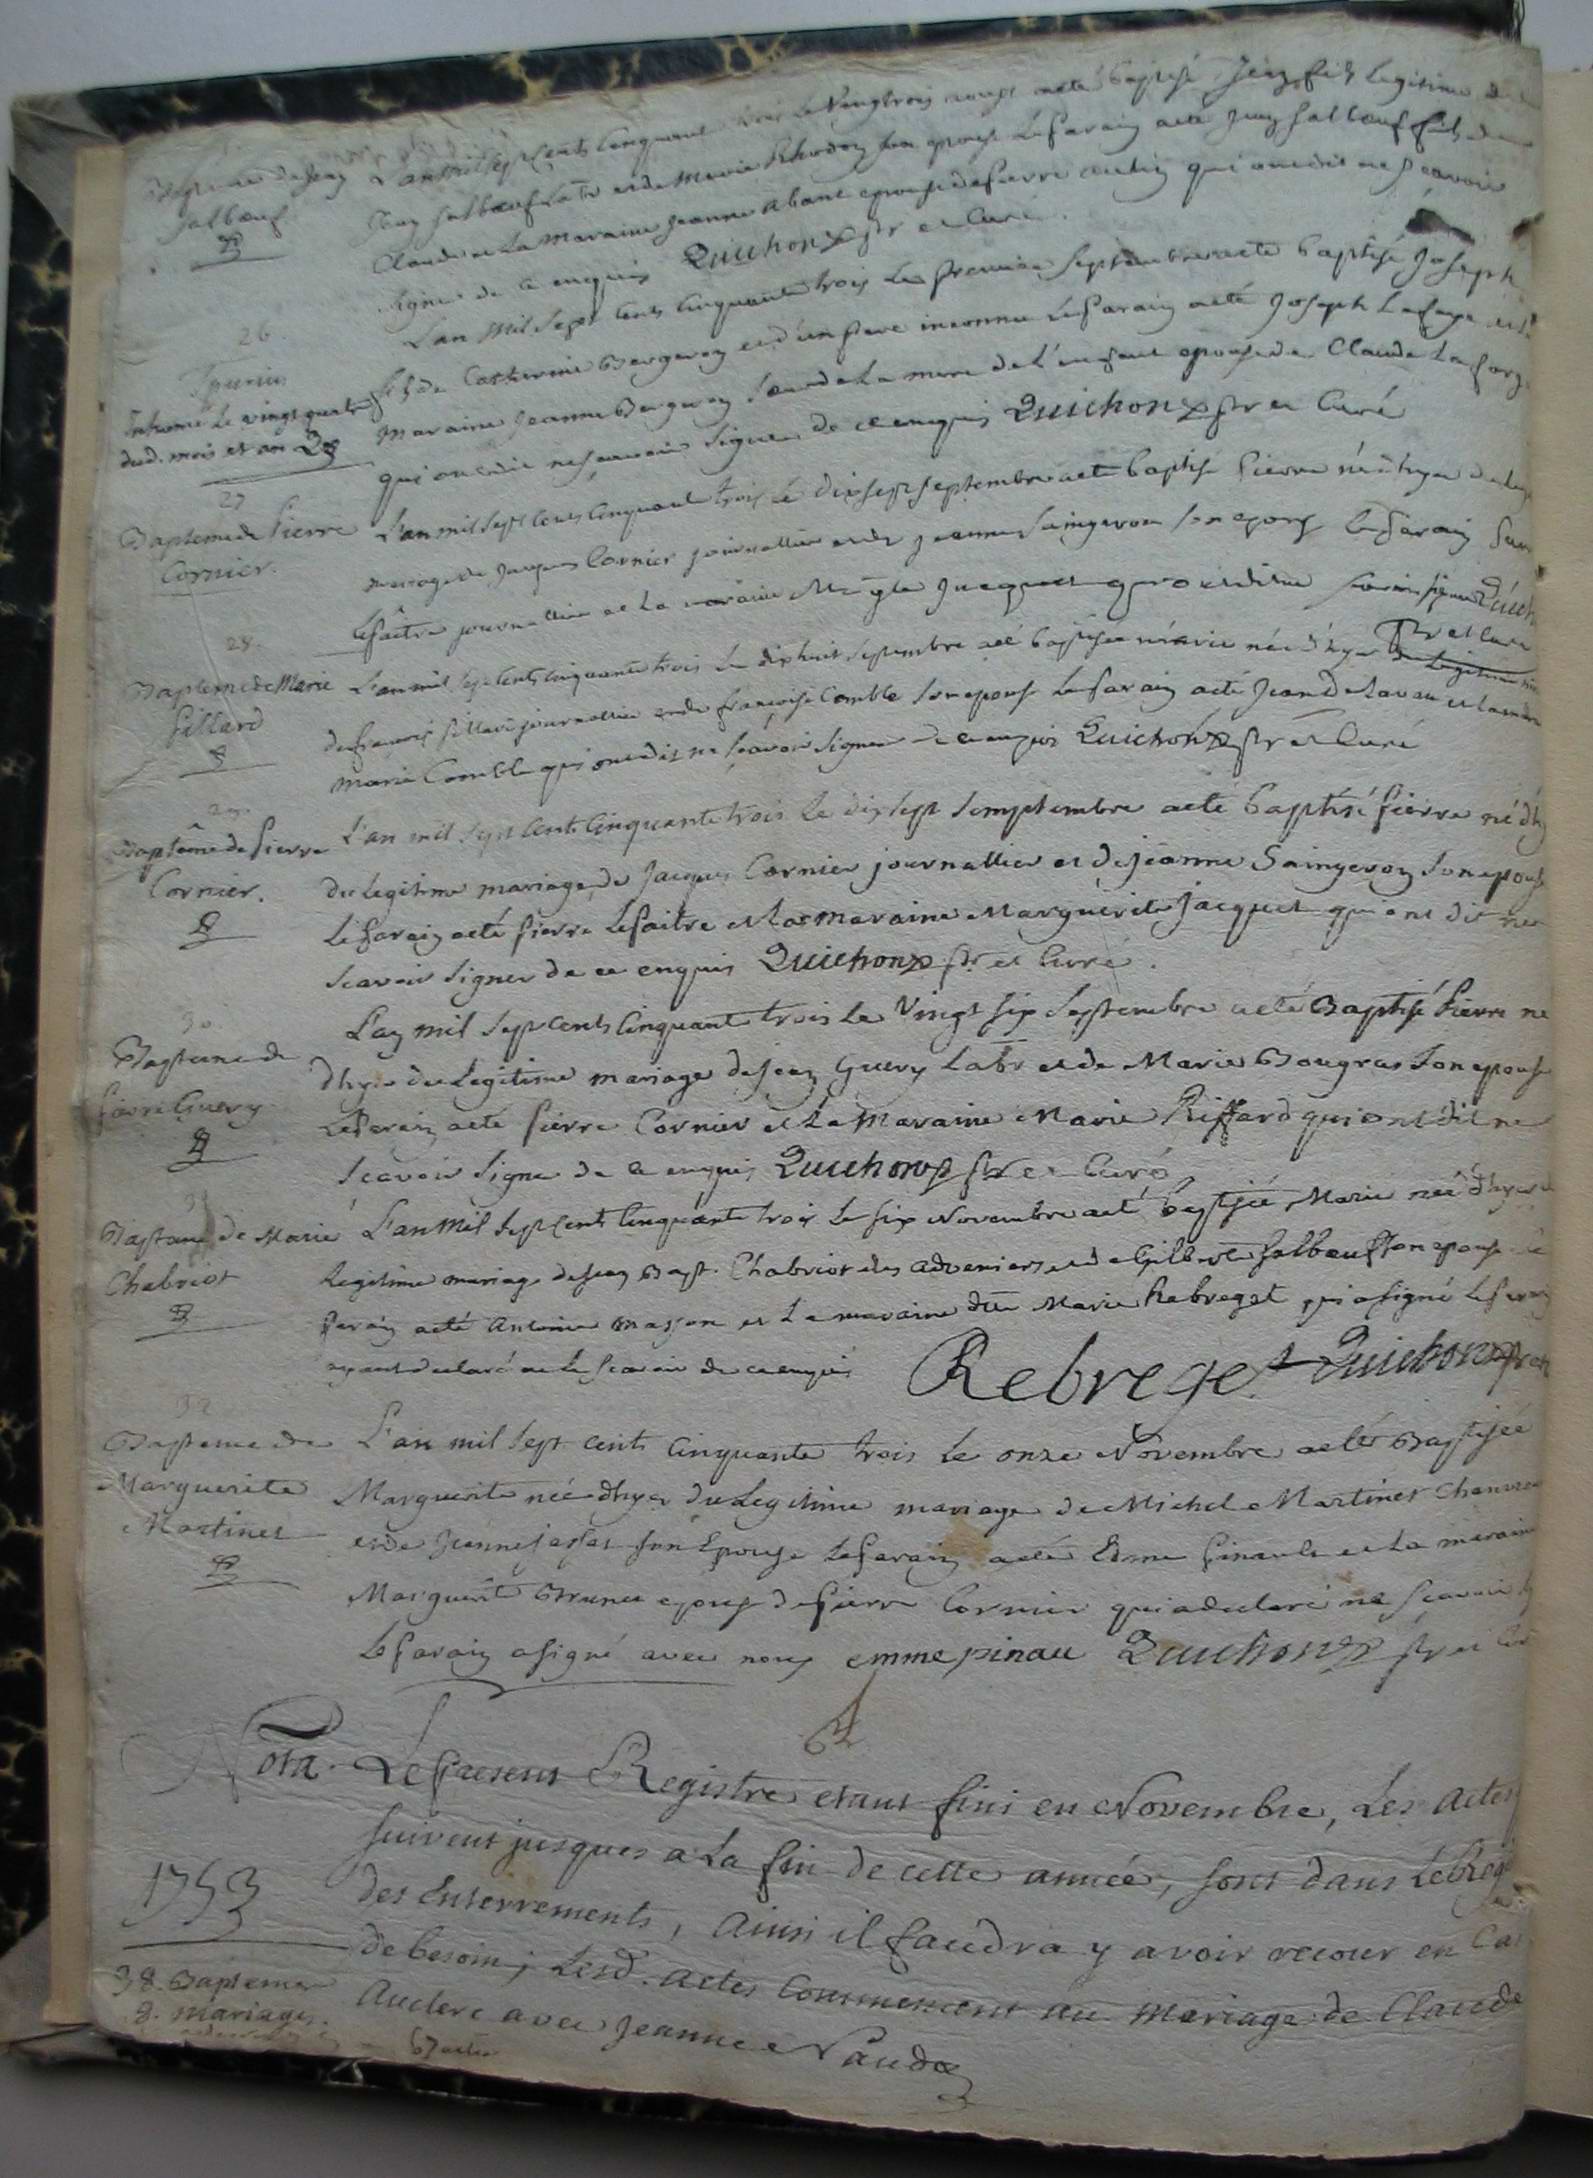 Bapteme de Jean
Salbœuf
L'an mil sept cents cinquante trois le vingt trois aoust a eté baptisé Jean fils legitime de
Jean Salbœuf labr et de Marie Rhodon son epouse Le Parain a eté Jean Salbœuf fils de
Claude et La Maraine Jeanne abant epouse de Pierre qui ont dit ne sçavoir
signer de ce enquis Quichon ptr et Curé
26
Spurius
Inhumé Le vingt quatre
dud. mois et an
L'an Mil Sept Cents Cinquante trois Le premier Septembre a eté baptisé Joseph
fils de Catherine Bergeron et d'un pere inconnu Le Parain a eté Joseph Lafaye et la
Maraine Jeanne Bergeron Sœur de La mere de L'enfant epouse de Claude La forge
qui ont dit ne sçavoir signer de ce enquis Quichon ptr et Curé
27
Bapteme de Pierre
Cornier.
L'an mil Sept Cents Cinquante trois Le dix sept septembre a eté baptisé Pierre né d'hyer du leg
mariage de Jacques Cornier journallier et de Jeanne Saingeron son epouse le Parain
Lefaître journallier et La maraine Mgte Jacquet qui ont dit ne scavoir signer Quich
Ptr et Curé
28.
Bapteme de Marie
Fillard
L'an mil sept Cents cinquante trois Le dixhuit septembre a eté baptisée Marie née d'hyer du Legitime
de françois fillard journallier et de françoise Comble son epouse Le Parain a eté Jean Delavau et la
marie Comble qui ont dit ne sçavoir signer de ce enquis Quichon ptr et Curé
29.
Baptême de Pierre
Cornier.
L'an mil sept Cents Cinquante trois Le dix sept Semptembre a eté baptisé Pierre né d'hy
du Legitime mariage de Jacques Cornier journallier et de jeanne Saingeron Son epouse
Le Parain a eté Pierre Lefaitre et La maraine Marguerite Jacquet qui ont dit ne
Scavoir signer de ce enquis Quichon ptr et Curé.
30.
Bapteme de
Pierre Guery
L'an mil Sept Cents Cinquante trois Le Vingt six Septembre a eté Baptisé Pierre né
d'hyer du Legitime mariage de Jean Guery Labr et de Marie Bougras Son epouse
Le Parain a eté Pierre Cornier et La Maraine Marie Riffard qui ont dit ne
Scavoir signer de ce enquis Quichon ptr et Curé
31
Bapteme de Marie
Chabriot
L'an Mil Sept Cents Cinquante trois Le six Novembre a eté baptisée Marie née d'hyer
Legitime mariage de Jean Bapt. Chabriot des adveniers et de Gilberte Salbœuf son epouse Le
Parain a eté Antoine Masson et La maraine dlle Marie Rebreget qui a signé Le Parain
ayant declaré ne Le Scavoir de ce enquis Rebreget Quichon ptr
32
Bapteme de
Marguerite
Martinet
L'an mil Sept Cents Cinquante trois Le onze Novembre a eté Baptisée
Marguerite née d'hyer du Legitime mariage de Michel Martinet
et de Jeanne son Epouse Le Parain a eté Edme Pinault et La maraine
Marguerite Brunet epouse de Pierre Cornier qui a declaré ne Scavoir
Le Parain a signé avec nous emme pinau Quichon ptr et
Nota. Le present Registre etant fini en Novembre, Les actes
suivent jusques a La fin de cette année, sont dans Le Regi
des Enterrements, Ainsi il faudra y avoir recour en cas
de besoin; Lesd. actes Commencent au Mariage de Claude
Auclerc avec Jeanne Naudon
1753
38. Baptemes
8. Mariages.